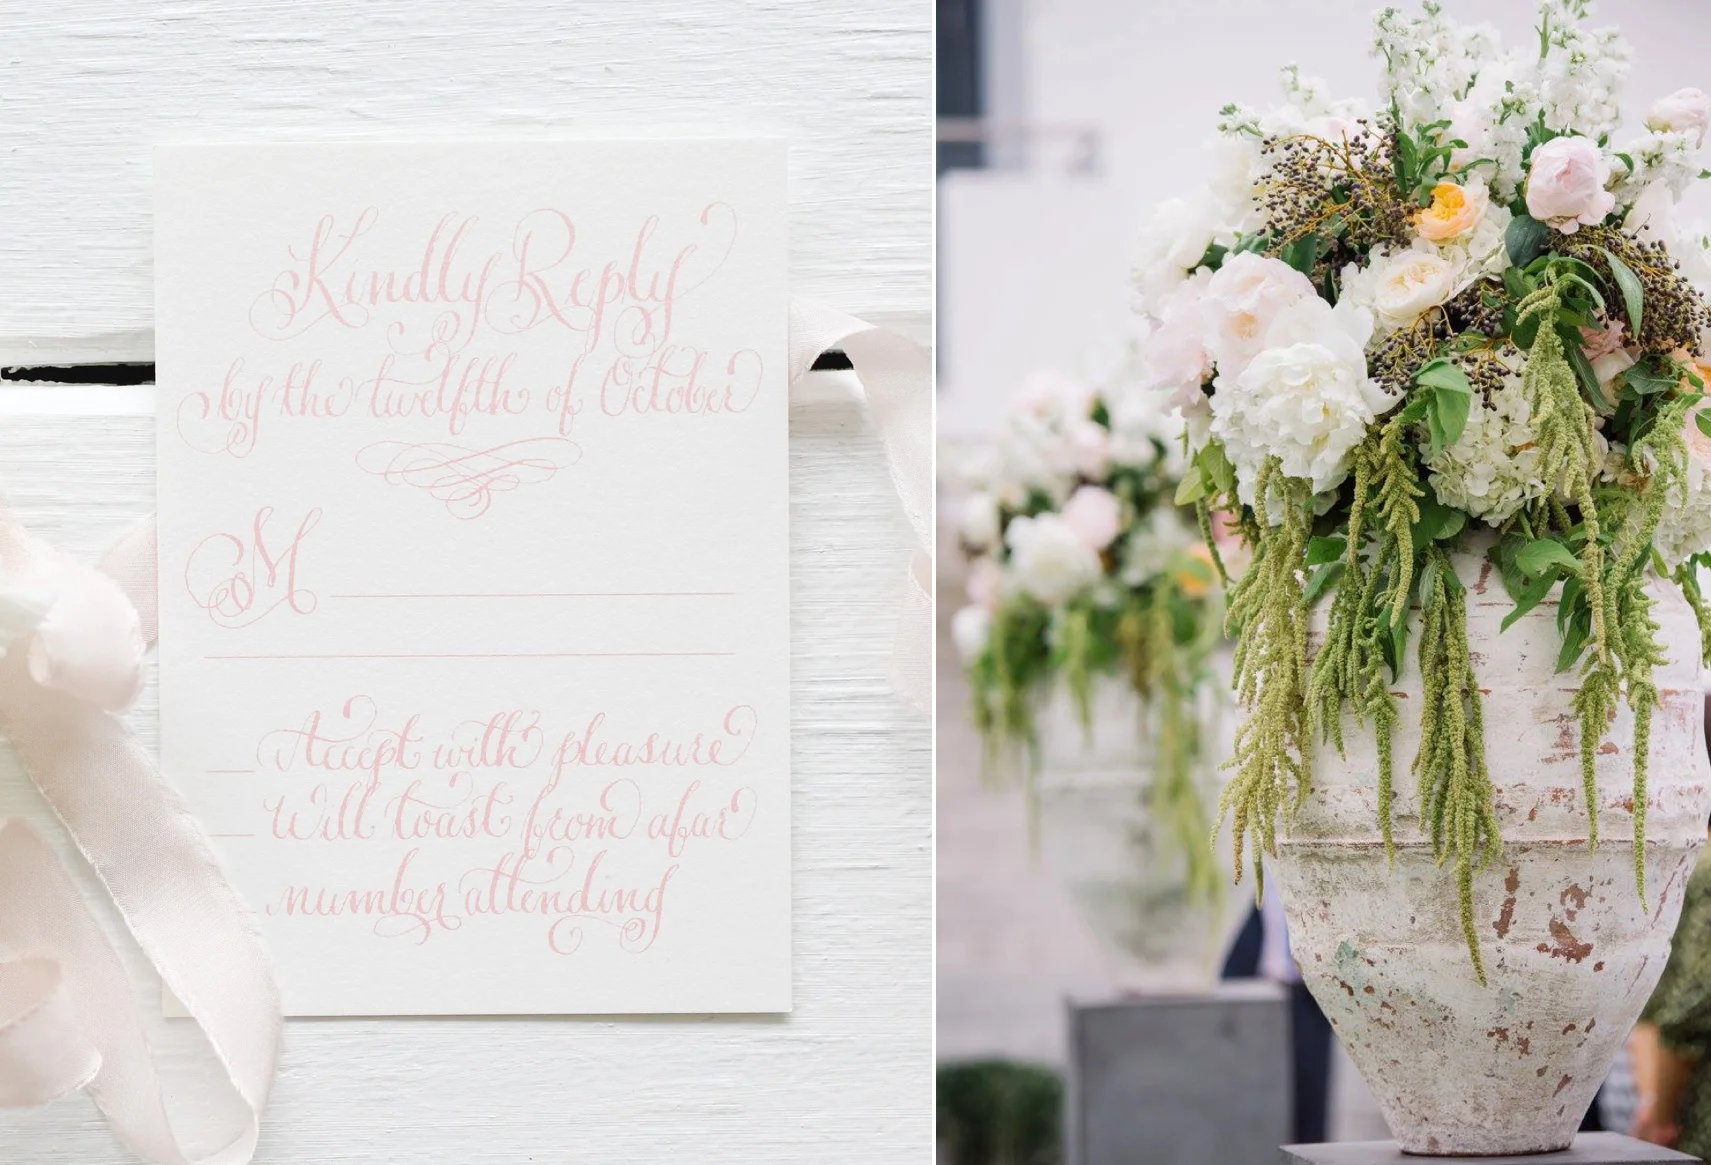 Kindly Reply
by the twelfth of October
M
Accept with pleasure
Will toast from afar
number attending